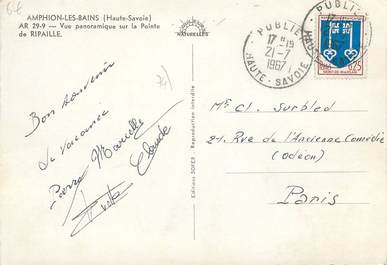 AMPHION-LES-BAINS (Haute-Savoie)
AR 29-9 — Vue panoramique sur la Pointe
de RIPAILLE.
NATURELLES
Bon souvenir
de vacances
Pierre Marcelle
Claude
Editions SOFER - Reproduction interdite
PUBLIER
17 H 15
21-7
1967
HAUTE-SAVOIE
PUBLIER
0,25
MONT-DE-MARSAN
Me Cl. Surbled
21. Rue de l'Ancienne Comédie
(Odéon)
Paris